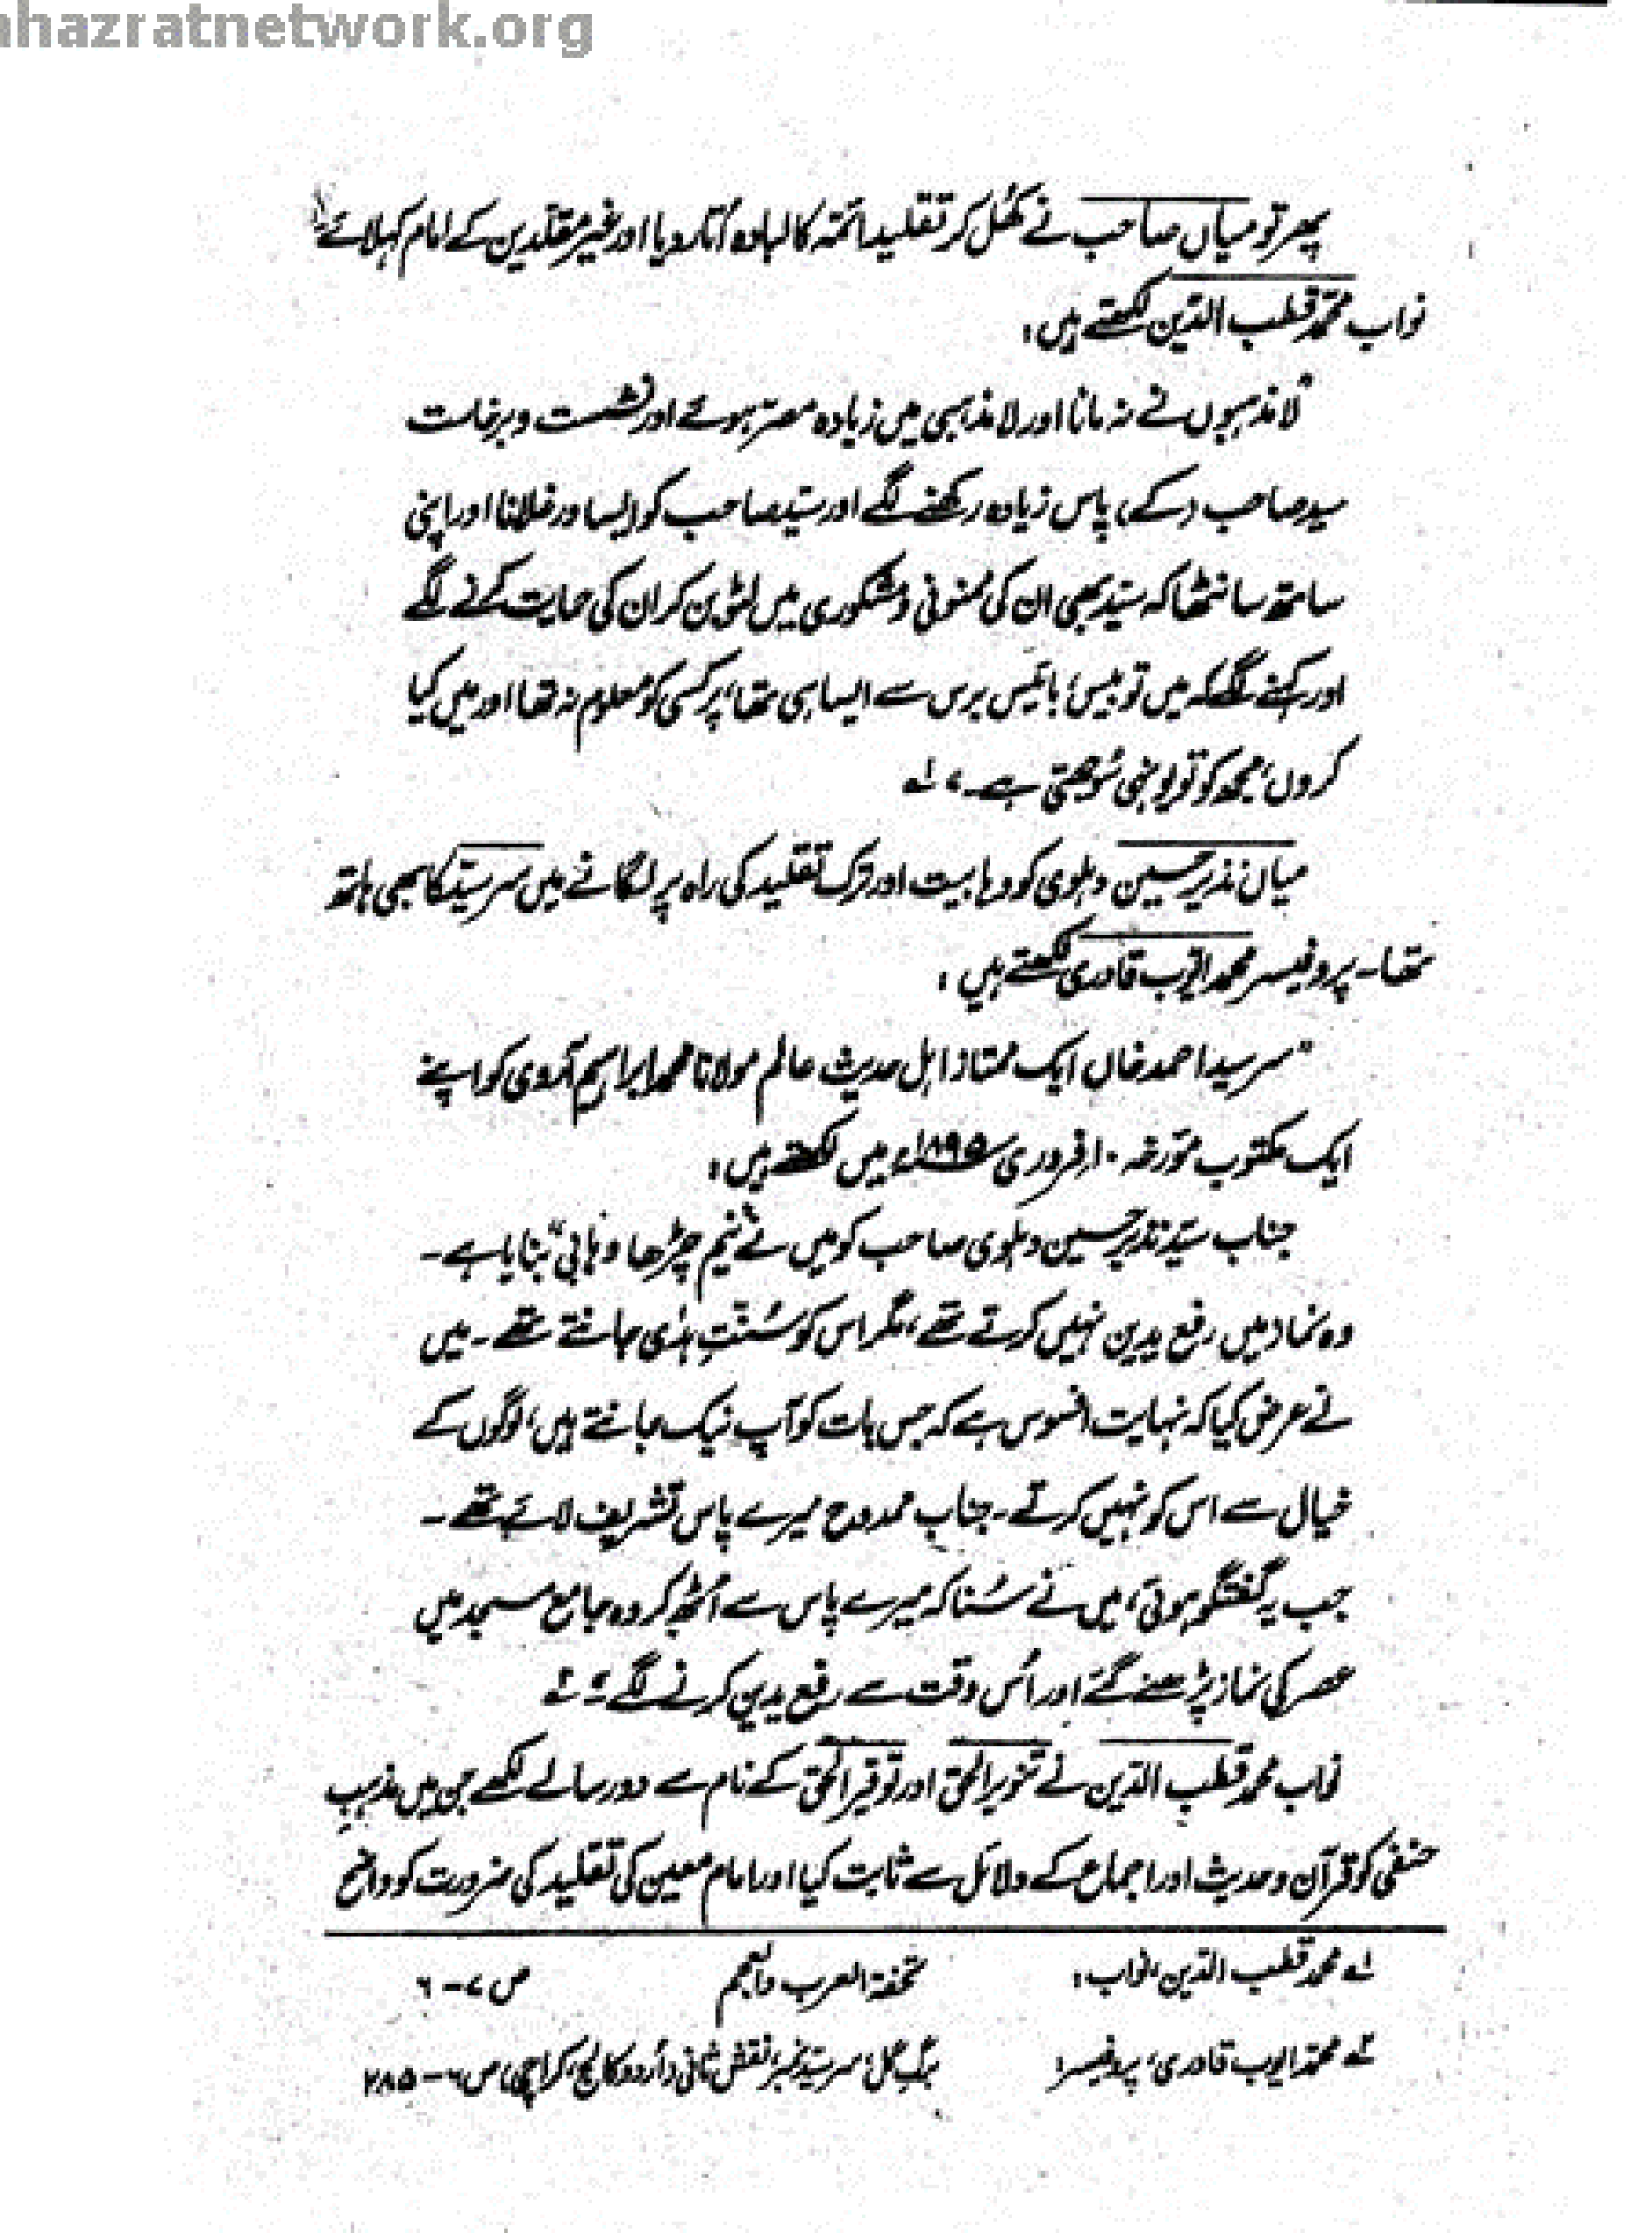 ahazratnetwork.org
پھر تو میاں صاحب نے کھُل کر تقلیدِ ائمّہ کا لبادہ اُتار دیا اور غیر مقلّدین کے امام کہلائے
نواب محمّد قطب الدّین لکھتے ہیں:
"لا مذہبوں نے نہ مانا اور لا مذہبی میں زیادہ مصر ہوئے اور نشست و برخاست
سید صاحب (کے) پاس زیادہ رکھنے لگے اور سیّد صاحب کو ایسا ورغلانا اور اپنی
ساتھ سانٹھا کہ سیّد بھی ان کی ممنونی و مشکوری میں لٹّو بن کر ان کی حمایت کرنے لگے
اور کہنے لگے کہ میں تو بیس، بائیس برس سے ایسا ہی تھا، پر کسی کو معلوم نہ تھا اور میں کیا
کروں، مجھ کو تو یونہی سُوجھتی ہے۔" لہ
میاں نذیر حسین دہلوی کو وہابیت اور ترکِ تقلید کی راہ پر لگانے میں سرسیّد کا بھی ہاتھ
تھا۔ پروفیسر محمد ایّوب قادری لکھتے ہیں:
"سرسید احمد خاں ایک ممتاز اہل حدیث عالم مولانا محمد ابراہیم آروی کو اپنے
ایک مکتوب مؤرخہ ۱۰؍فروری ۱۸۹۵ء میں لکھتے ہیں:
جناب سیّد نذیر حسین دہلوی صاحب کو میں نے "نیم چڑھا وہابی" بنایا ہے۔
وہ نماز میں رفع یدین نہیں کرتے تھے، مگر اس کو سُنّتِ ہدٰی جانتے تھے۔ میں
نے عرض کیا کہ نہایت افسوس ہے کہ جس بات کو آپ نیک جانتے ہیں، لوگوں کے
خیال سے اس کو نہیں کرتے۔ جناب ممدوح میرے پاس تشریف لائے تھے۔
جب یہ گفتگو ہوئی، میں نے سُنا کہ میرے پاس سے اُٹھ کر وہ جامع مسجد میں
عصر کی نماز پڑھنے گئے اور اُس وقت سے رفع یدین کرنے لگے" ۲ہ
نواب محمد قطب الدّین نے تنویر الحق اور توقیر الحق کے نام سے دو رسالے لکھے جن میں مذہبِ
حنفی کو قرآن و حدیث اور اجماع کے دلائل سے ثابت کیا اور امام معین کی تقلید کی ضرورت کو واضح
لہ محمد قطب الدین، نواب: تحفۃ العرب والعجم ص ۷-۶
۲ہ محمد ایوب قادری، پروفیسر: برگِ گل، سرسیّد نمبر، نقش ثانی (اُردو کالج، کراچی) ص ۶-۲۸۵